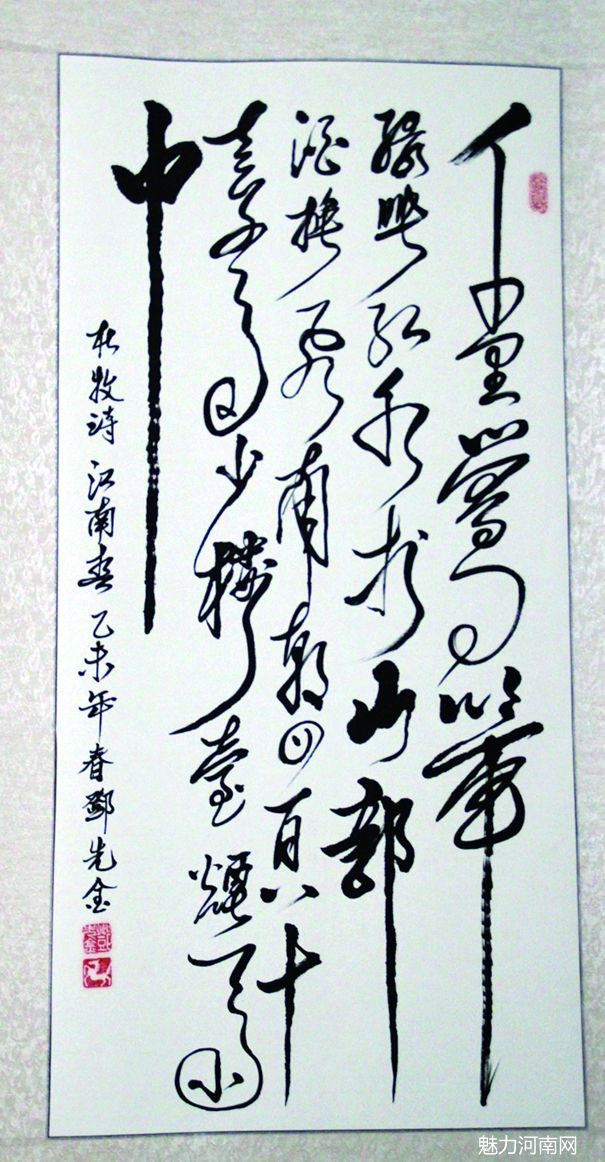 千里鶯啼
綠映紅水村山郭
酒旗風南朝四百八十
寺多少樓臺煙雨
中
杜牧詩 江南春 乙未年春 鄧先金
魅力河南网